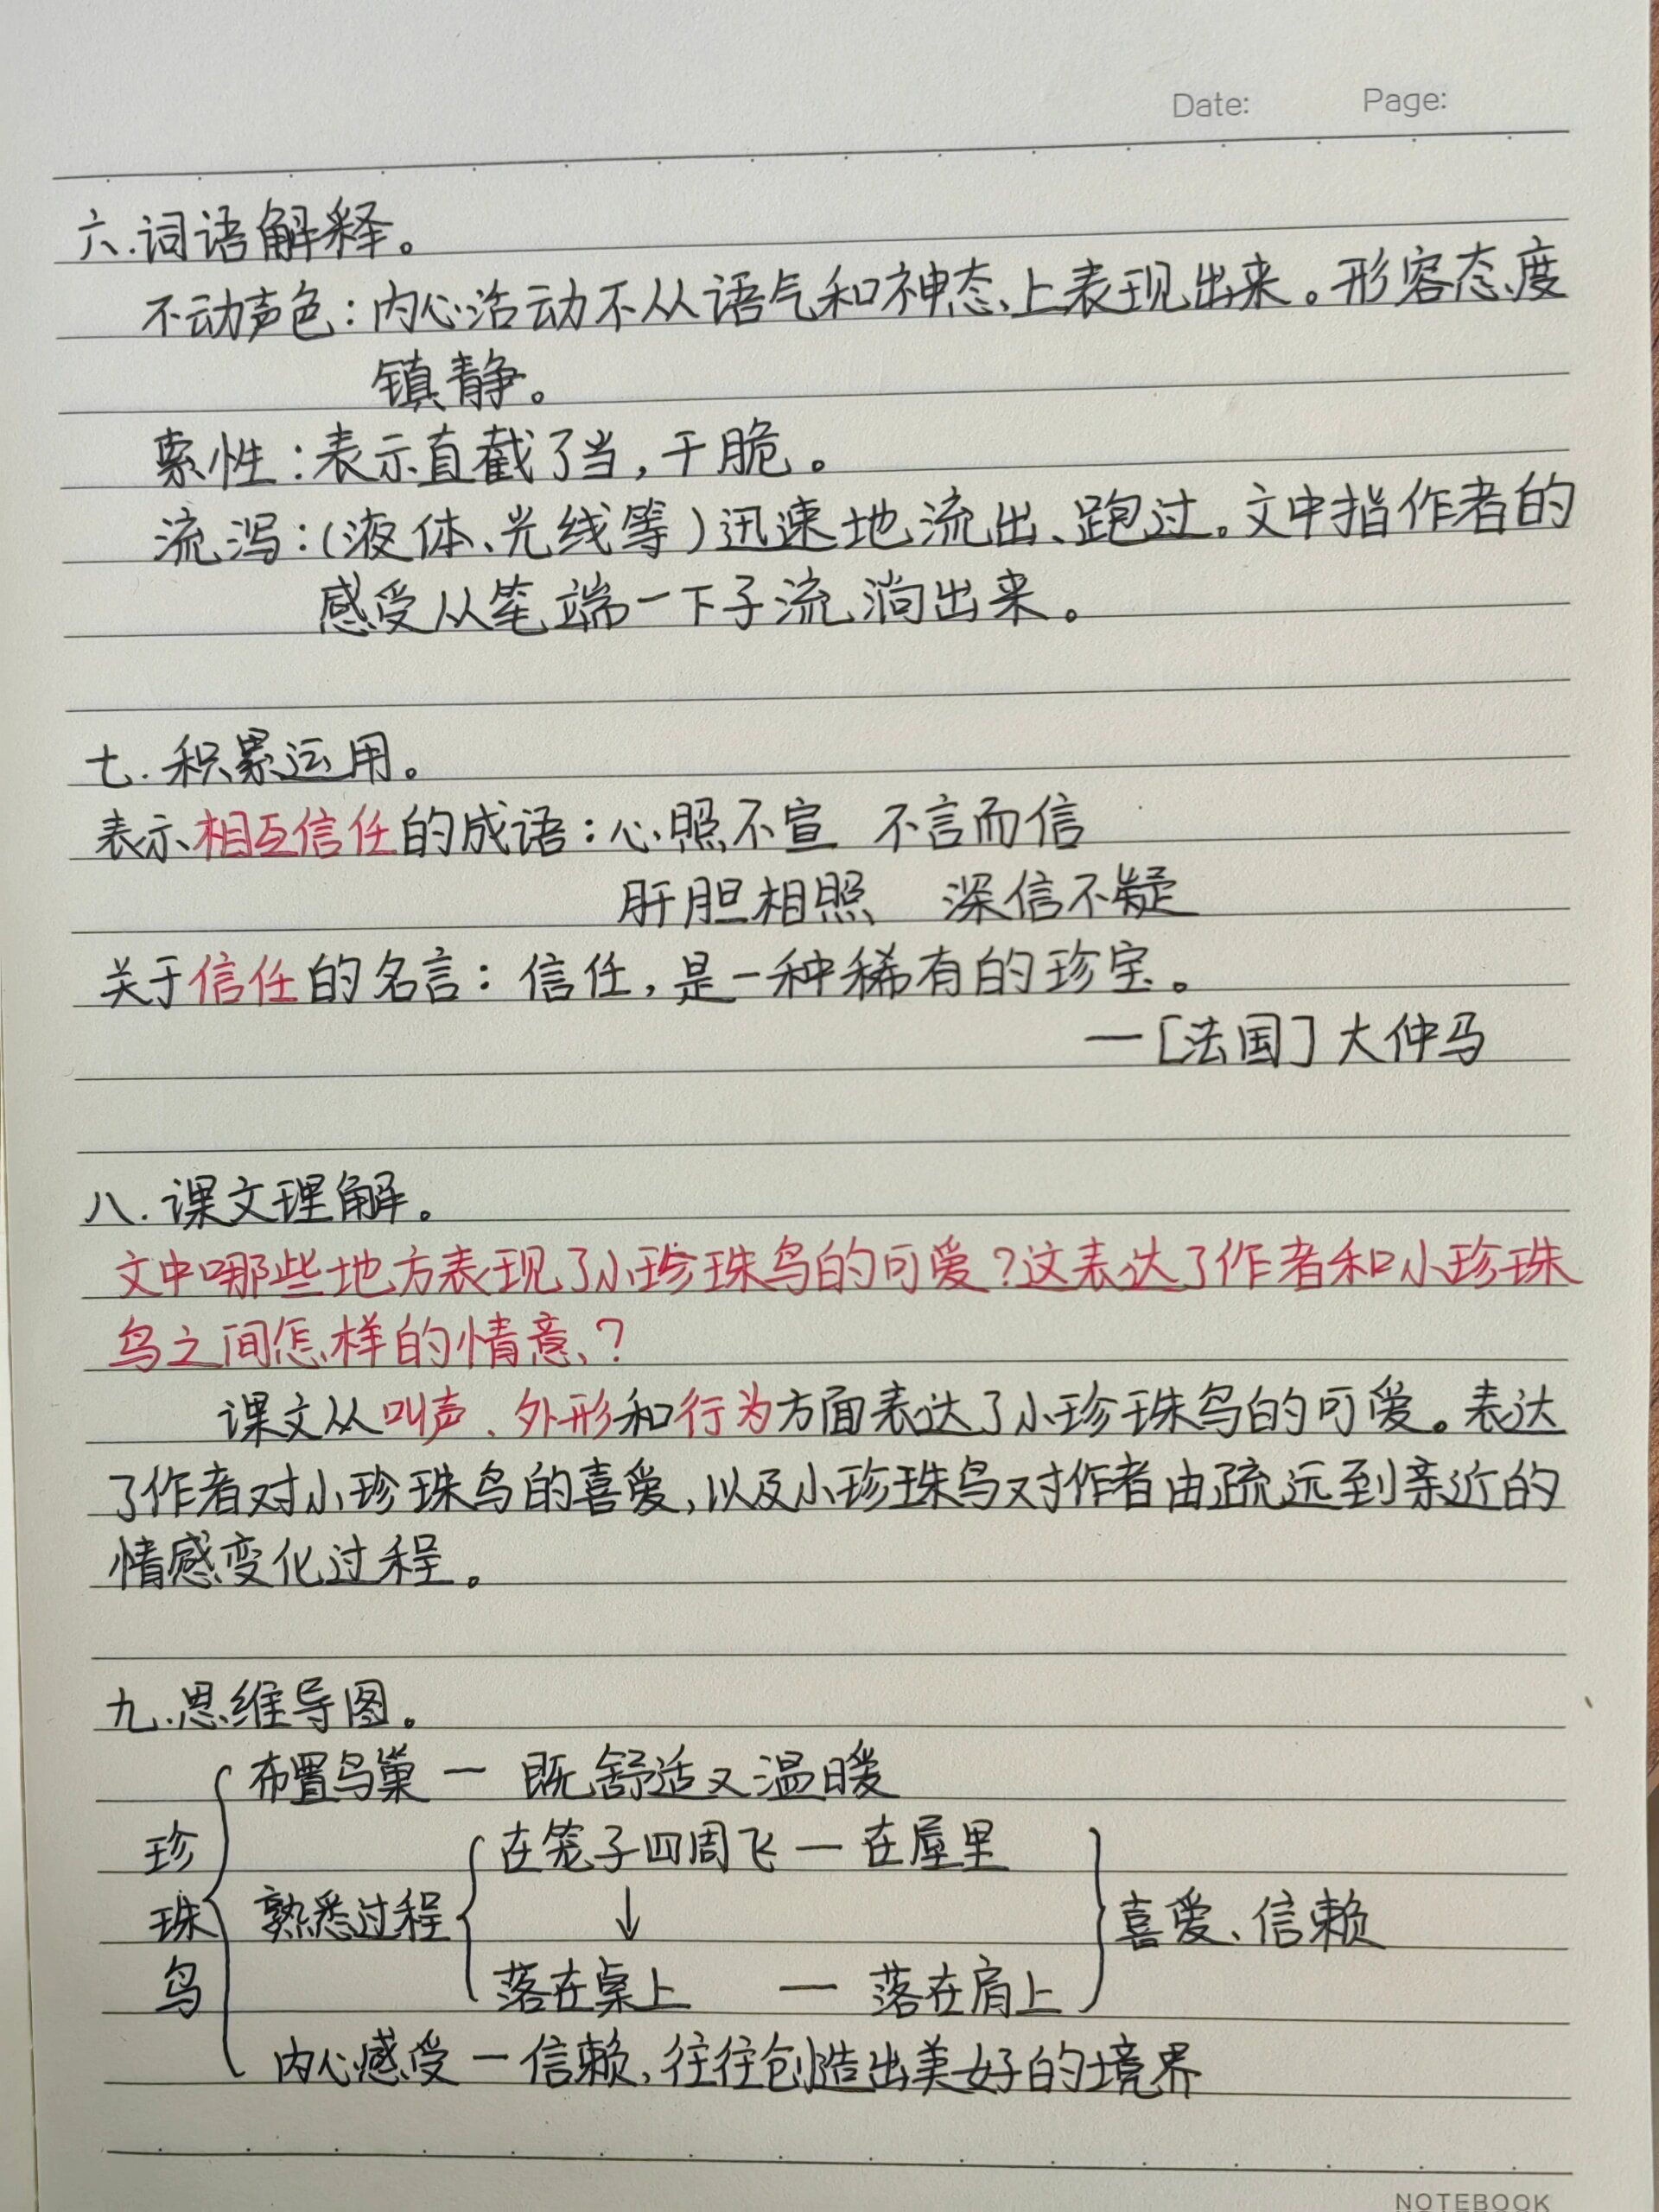 Date: Page:
六.词语解释。
不动声色:内心活动不从语气和神态上表现出来。形容态度
镇静。
索性:表示直截了当,干脆。
流泻:(液体、光线等)迅速地流出、跑过。文中指作者的
感受从笔端一下子流淌出来。
七.积累运用。
表示相互信任的成语:心照不宣 不言而信
肝胆相照 深信不疑
关于信任的名言:信任,是一种稀有的珍宝。
—[法国]大仲马
八.课文理解。
文中哪些地方表现了小珍珠鸟的可爱?这表达了作者和小珍珠
鸟之间怎样的情意?
课文从叫声、外形和行为方面表达了小珍珠鸟的可爱。表达
了作者对小珍珠鸟的喜爱,以及小珍珠鸟对作者由疏远到亲近的
情感变化过程。
九.思维导图。
珍珠鸟
布置鸟巢—既舒适又温暖
熟悉过程
在笼子四周飞—在屋里
↓
落在桌上—落在肩上
喜爱、信赖
内心感受—信赖,往往创造出美好的境界
NOTEBOOK